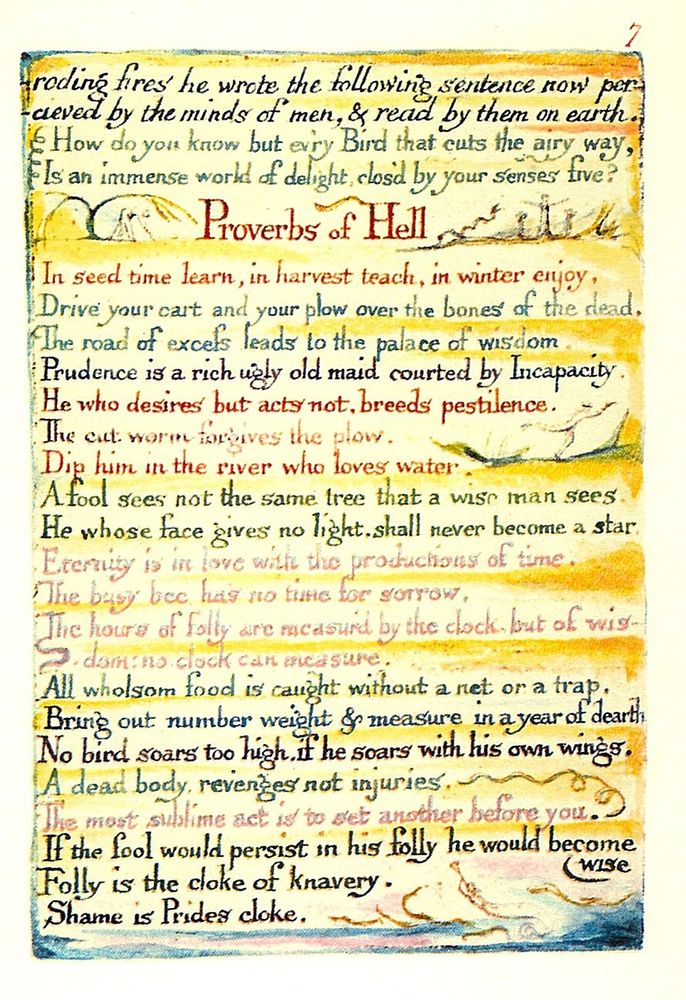 7
-roding fires he wrote the following sentence now per-
-cieved by the minds of men, & read by them on earth.
How do you know but ev'ry Bird that cuts the airy way,
Is an immense world of delight, clos'd by your senses five?
Proverbs of Hell
In seed time learn, in harvest teach, in winter enjoy.
Drive your cart and your plow over the bones of the dead.
The road of excess leads to the palace of wisdom.
Prudence is a rich ugly old maid courted by Incapacity.
He who desires but acts not, breeds pestilence.
The cut worm forgives the plow.
Dip him in the river who loves water.
A fool sees not the same tree that a wise man sees.
He whose face gives no light, shall never become a star.
Eternity is in love with the productions of time.
The busy bee has no time for sorrow.
The hours of folly are measur'd by the clock, but of wis-
-dom: no clock can measure.
All wholsom food is caught without a net or a trap.
Bring out number weight & measure in a year of dearth
No bird soars too high, if he soars with his own wings.
A dead body, revenges not injuries.
The most sublime act is to set another before you.
If the fool would persist in his folly he would become
wise
Folly is the cloke of knavery.
Shame is Prides cloke.